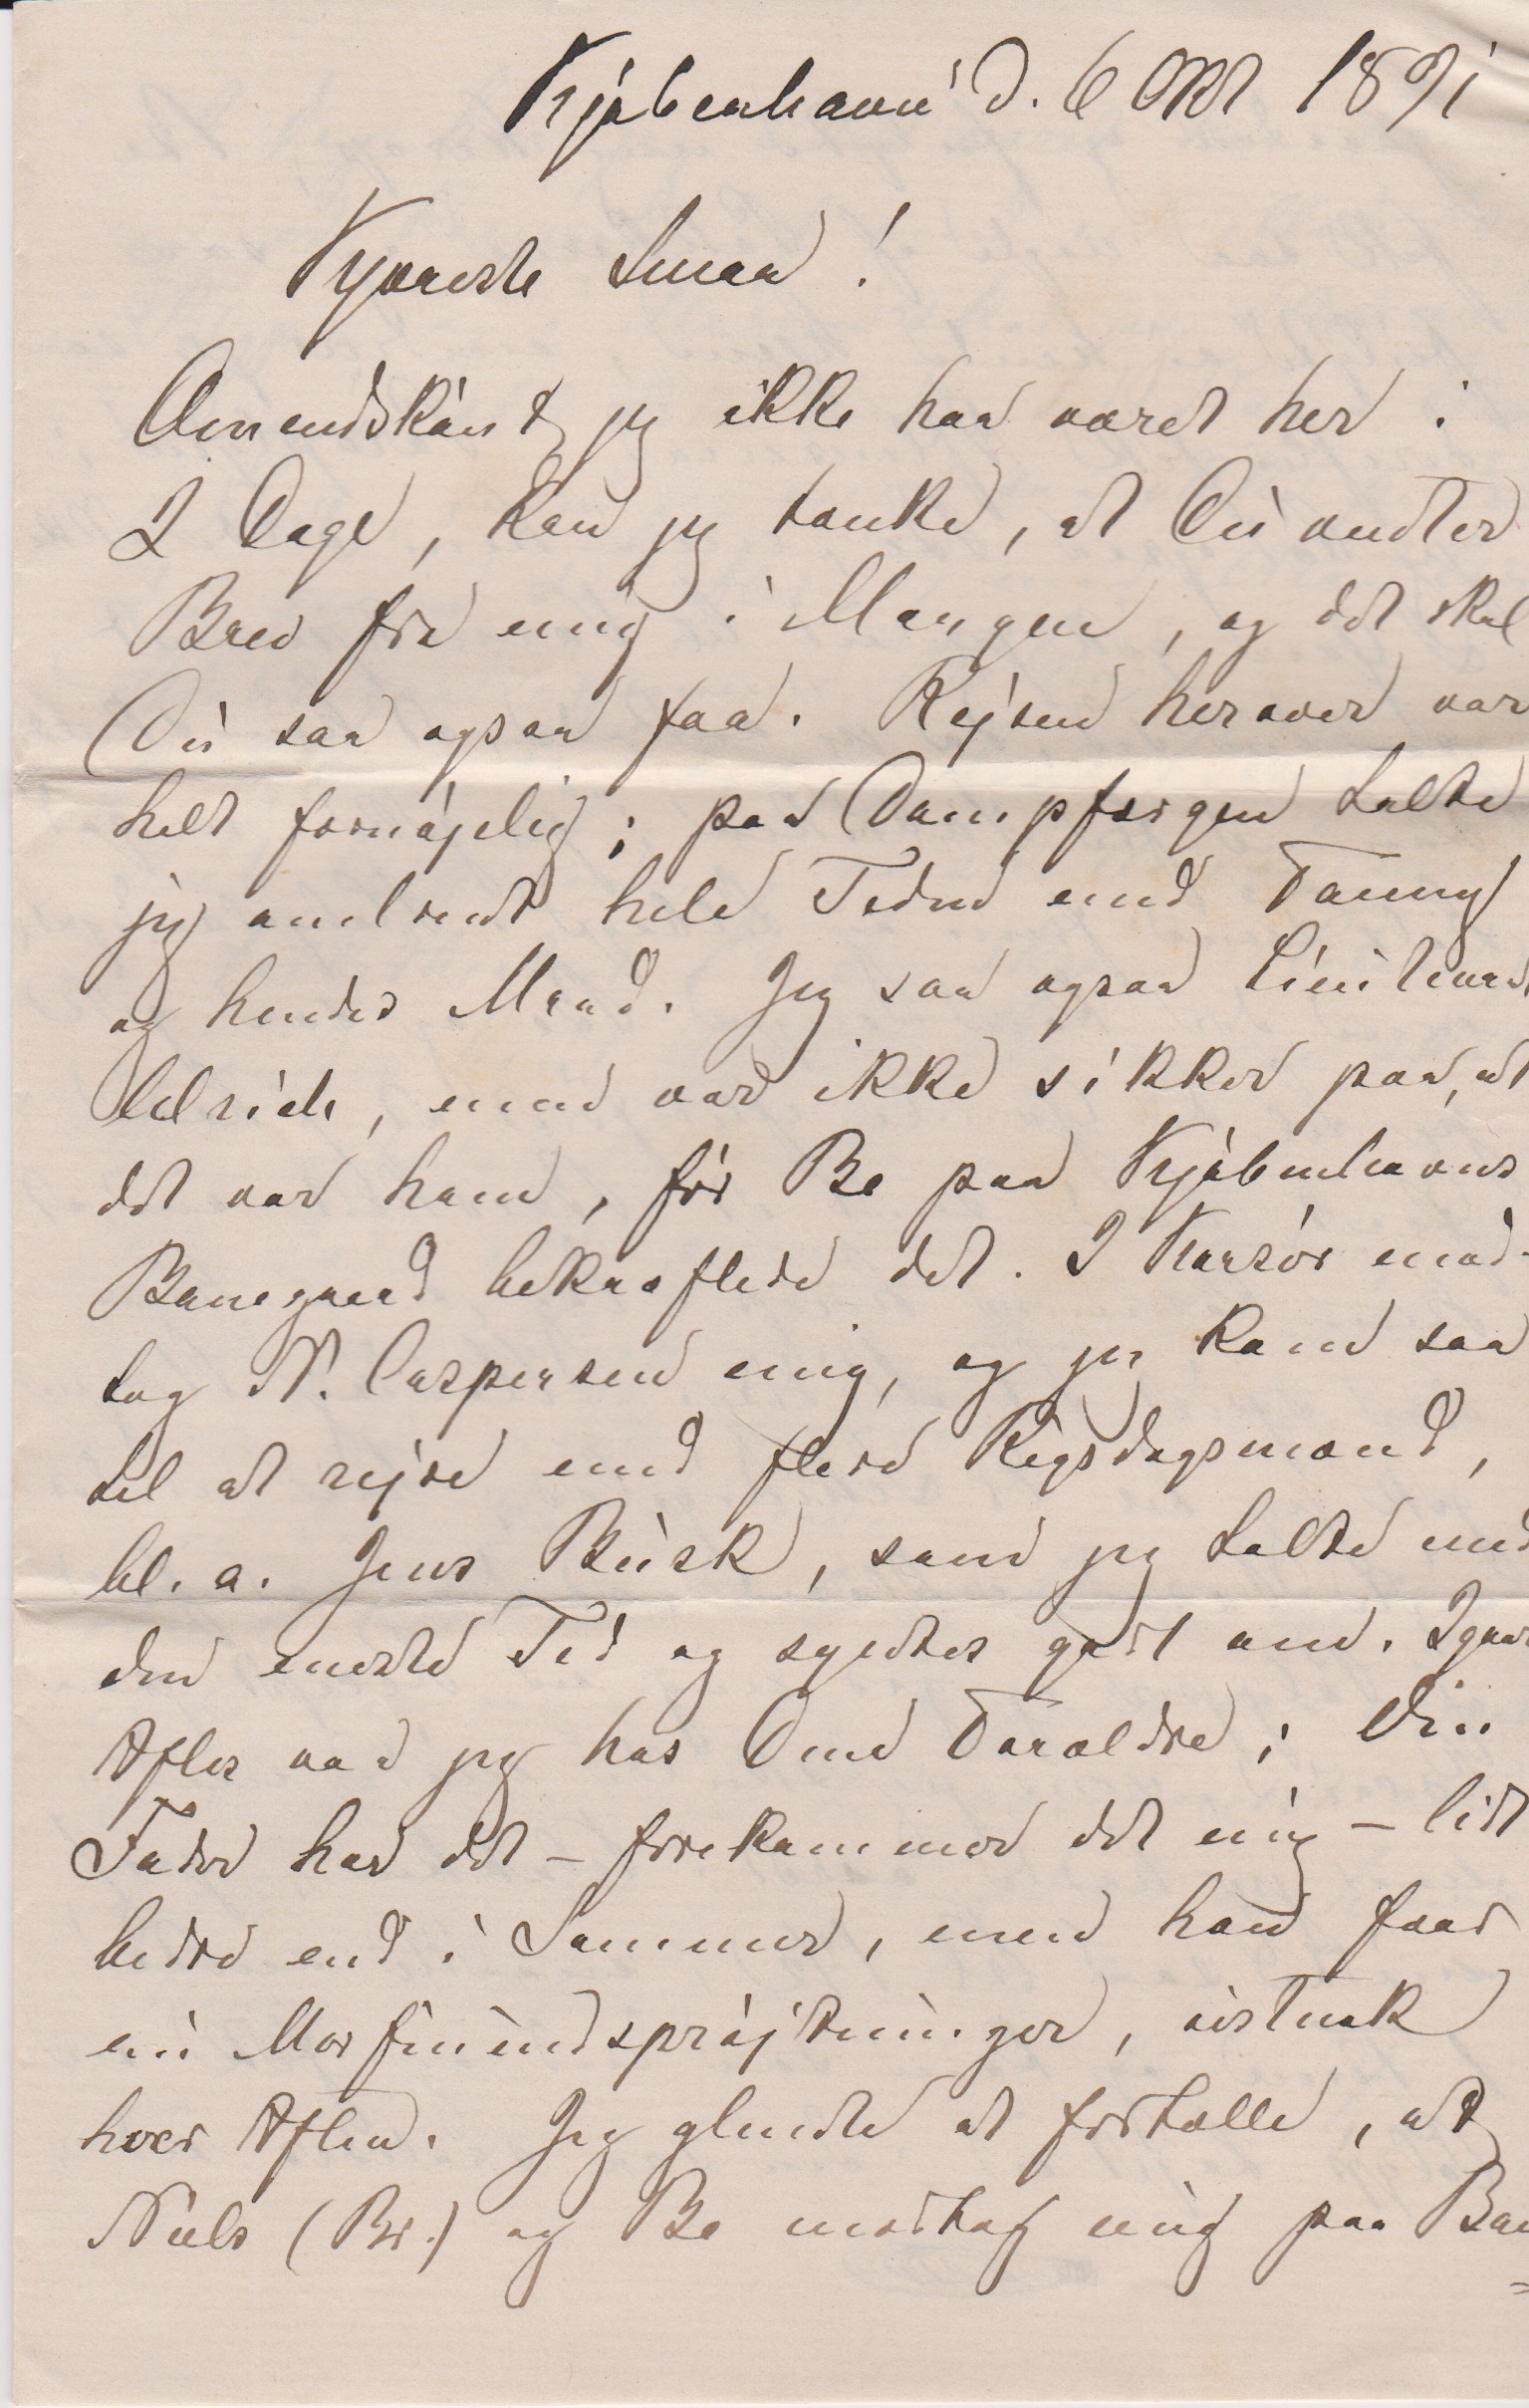 Kjøbenhavn d. 6 Okt 1891
Kjæreste Smaa!
Omendskønt jeg ikke har været her i
2 Dage, kan jeg tænke, at Du venter
Brev fra mig i Morgen, og det skal
Du saa ogsaa faa. Rejsen herover var
helt fornøjelig; paa Dampfærgen talte
jeg omtrent hele Tiden med Fanny
og hendes Mand. Jeg saa ogsaa Lieutenant
Ulrich, men var ikke sikker paa, at
det var ham, før Be paa Kjøbenhavns
Banegaard bekræftede det. I Korsør mod-
tog N. Caspersen mig, og jeg kom saa
til at rejse med flere Rigsdagsmænd,
bl. a. Jens Busk, som jeg talte med
den meste Tid og syntes godt om. Igaar
Aftes var jeg hos Dine Forældre; Din
Fader har det – forekommer det mig – lidt
bedre end i Sommer, men han faar
nu Morfinindsprøjtninger, vistnok
hver Aften. Jeg glemte at fortælle, at
Niels (Br.) og Be modtog mig paa Ban
=